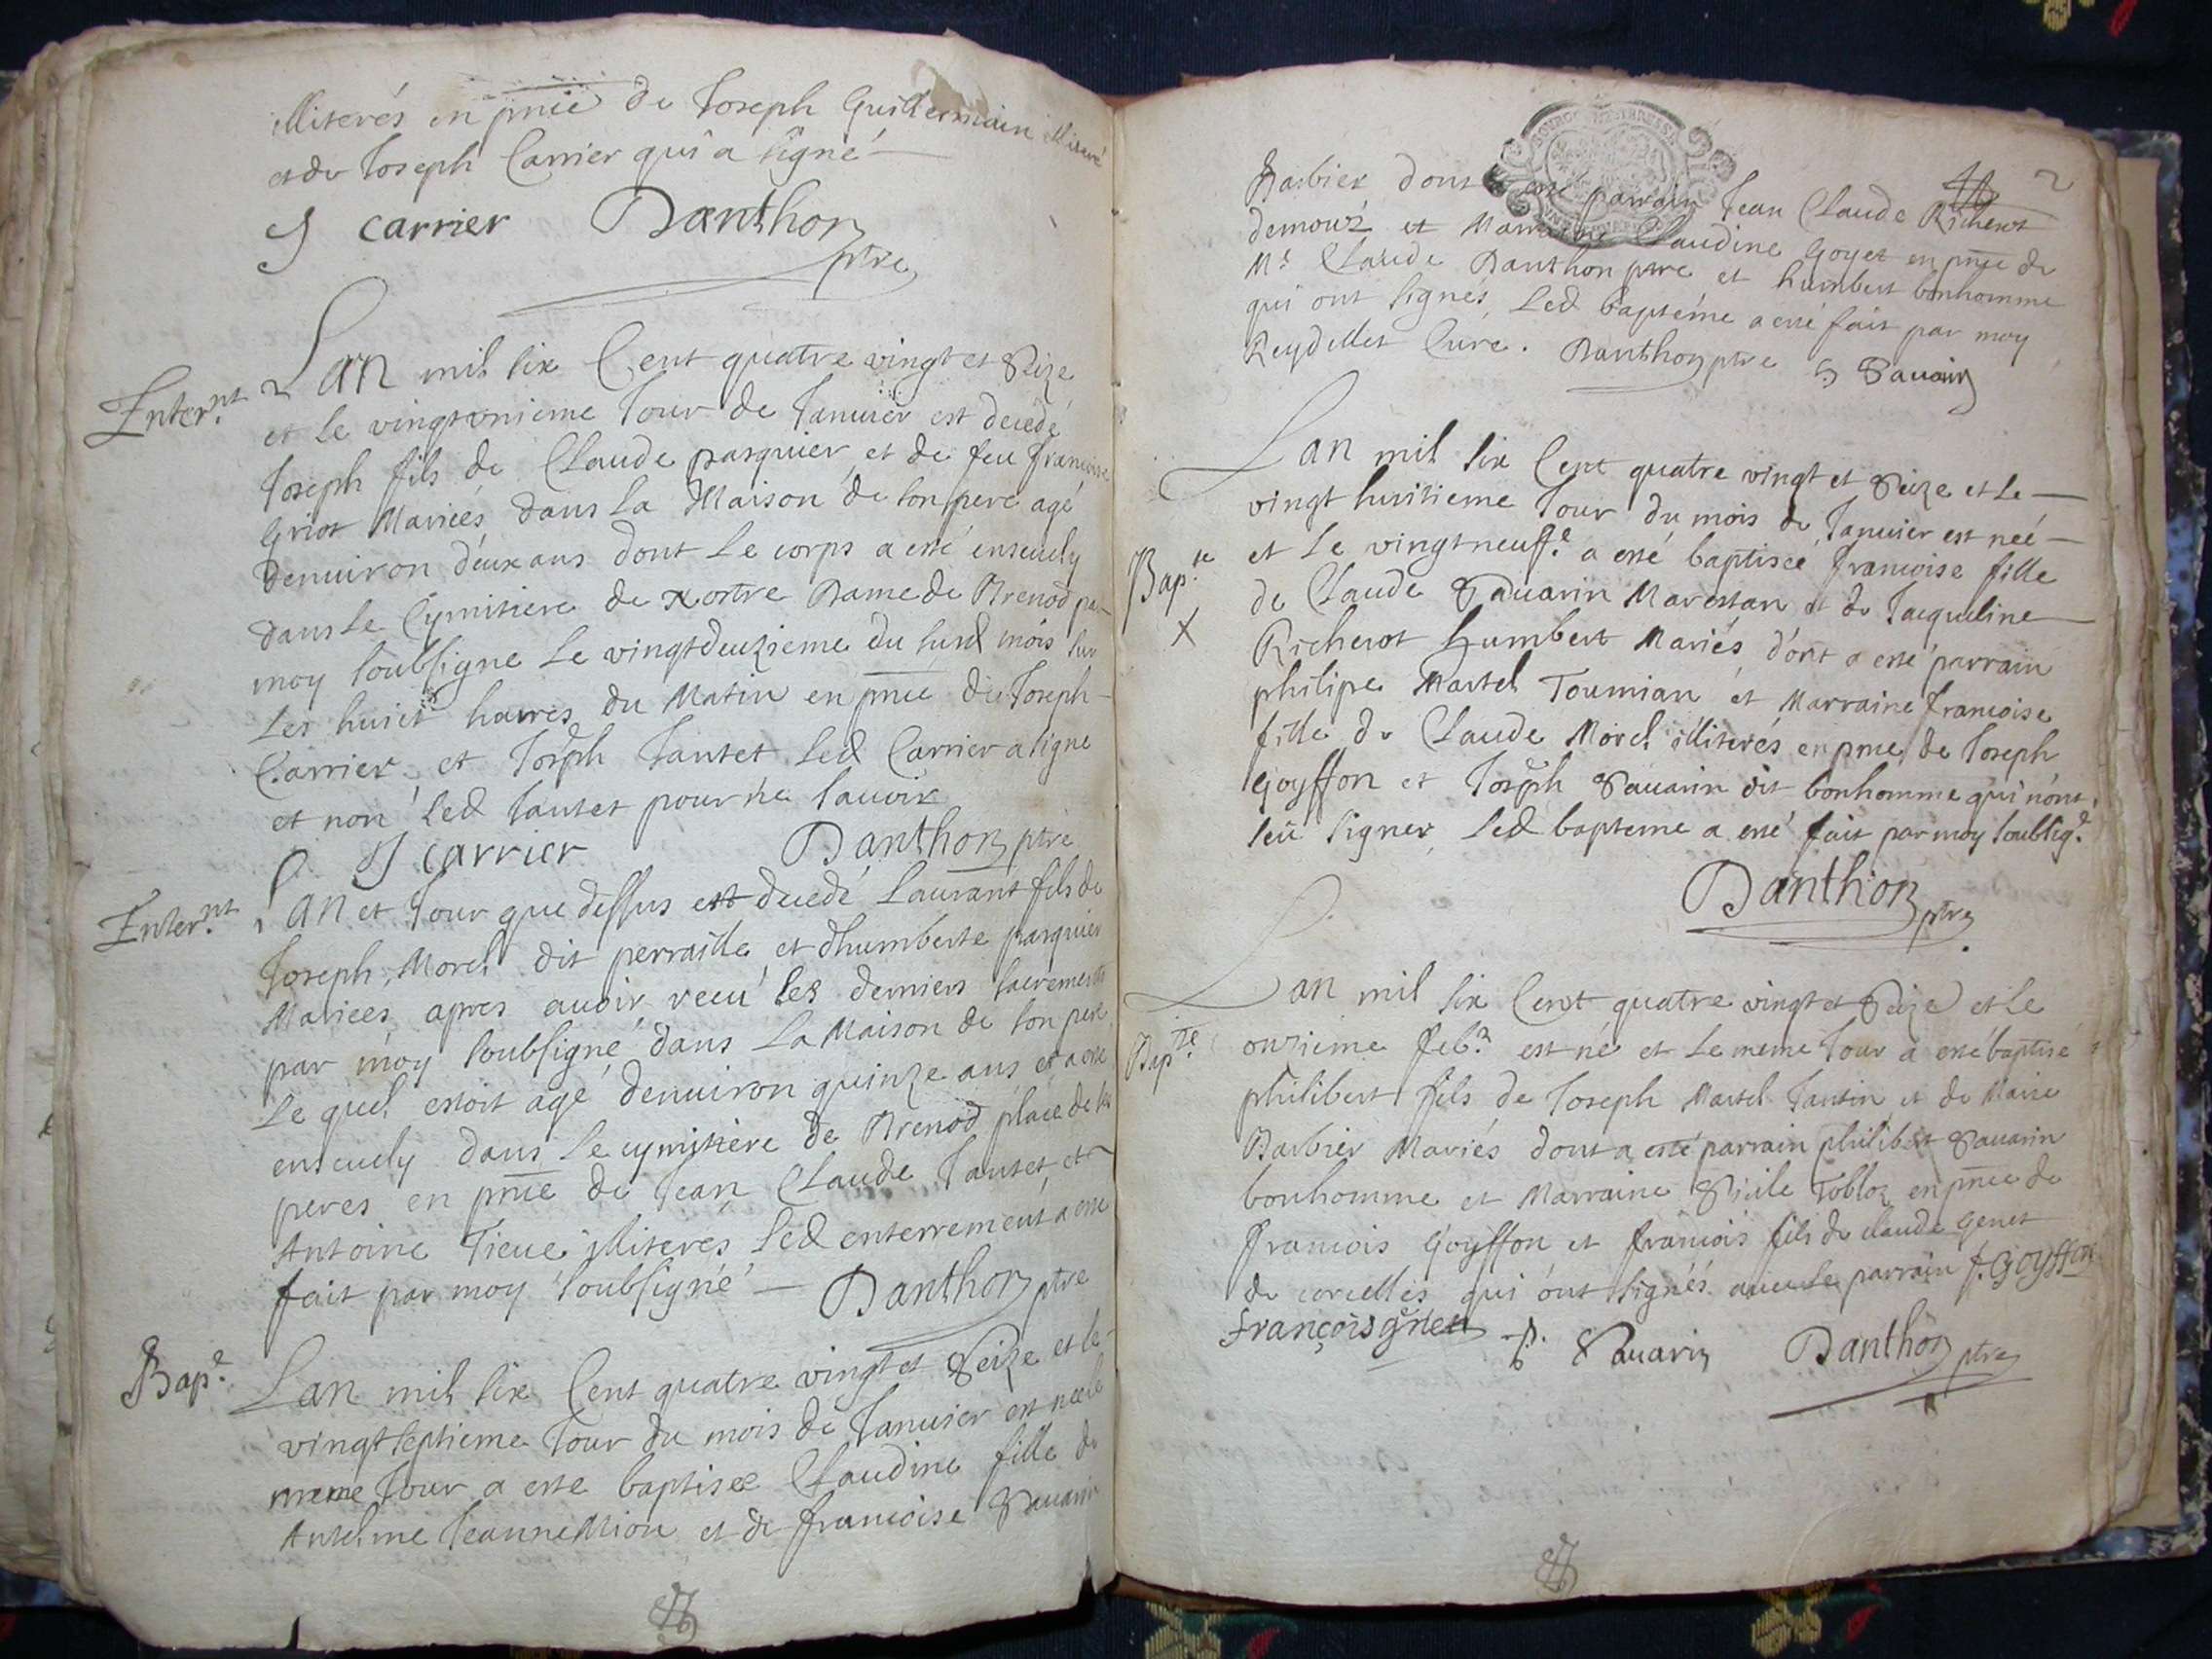 illiterés en pnce de Joseph Guillermain illiteré
et de Joseph Carrier qui a signé
J carrier Danthon
ptre
Enter.nt Lan mil six Cent quatre vingt et Seize
et le vingtunieme Jour de Januier est decedé
Joseph fils de Claude pasquier et de feu francoise
Griot Mariés dans la Maison de son pere agé
denuiron deux ans dont le corps a esté enseuely
dans le Cymitiere de Nostre Dame de Brenod par
moy soubsigne le vingtdeuzieme du susd mois sur
les huict heures du Matin en pnce de Joseph
Carrier et Joseph Tantet led Carrier a signe
et non led Tantet pour ne sauoir
J carrier Danthon ptre
Enter.nt Lan et Jour que dessus est decedé Laurant fils de
Joseph Morel dit perraille et dhumberte pasquier
Mariees apres auoir receu les derniers sacrements
par moy soubsigné dans la Maison de son pere
le quel estoit agé denuiron quinze ans et a esté
enseuely dans le cymitiere de Brenod place de ses
peres en pnce de Jean Claude Tantet et
Antoine Tieue illiterés led enterrement a esté
fait par moy soubsigné Danthon ptre
Bap.e Lan mil six Cent quatre vingt et Seize et le
vingtseptieme Jour du mois de Januier est née et le
meme Jour a esté baptisée Claudine fille de
Anthelme Jeanne et de francoise Sauarin
2
Barbier dont a esté parrain Jean Claude Richerot
et Marraine Claudine Goyet en pnce de
Mr Claude Danthon ptre et humbert bonhomme
qui ont signés led baptéme a esté fait par moy
Reydellet Curé. Danthon ptre h Sauarin
Lan mil six Cent quatre vingt et Seize et le
vingt huitieme Jour du mois de Januier est née
Bap.te et le vingtneuf.e a esté baptisée francoise fille
de Claude Sauarin Marestan et de Jacqueline
X Richerot humbert Mariés dont a esté parrain
philipe Martel Tournian et Marraine francoise
fille de Claude Morel illiterés en pnce de Joseph
Goyffon et Joseph Sauarin dit bonhomme qui n'ont
seü signer led bapteme a esté fait par moy soubsig.e
Danthon
ptre
Lan mil six Cent quatre vingt et Seize et le
Bap.te onzieme feb.r est né et le meme Jour a esté baptisé
philibert fils de Joseph Martel Tantin et de Marie
Barbier Mariés dont a esté parrain philibert Sauarin
bonhomme et Marraine en pnce de
francois Goyffon et francois fils de claude Genet
de corcelles qui ont signés auec le parrain f. Goyffon
françois genet p. Sauarin Danthon ptre